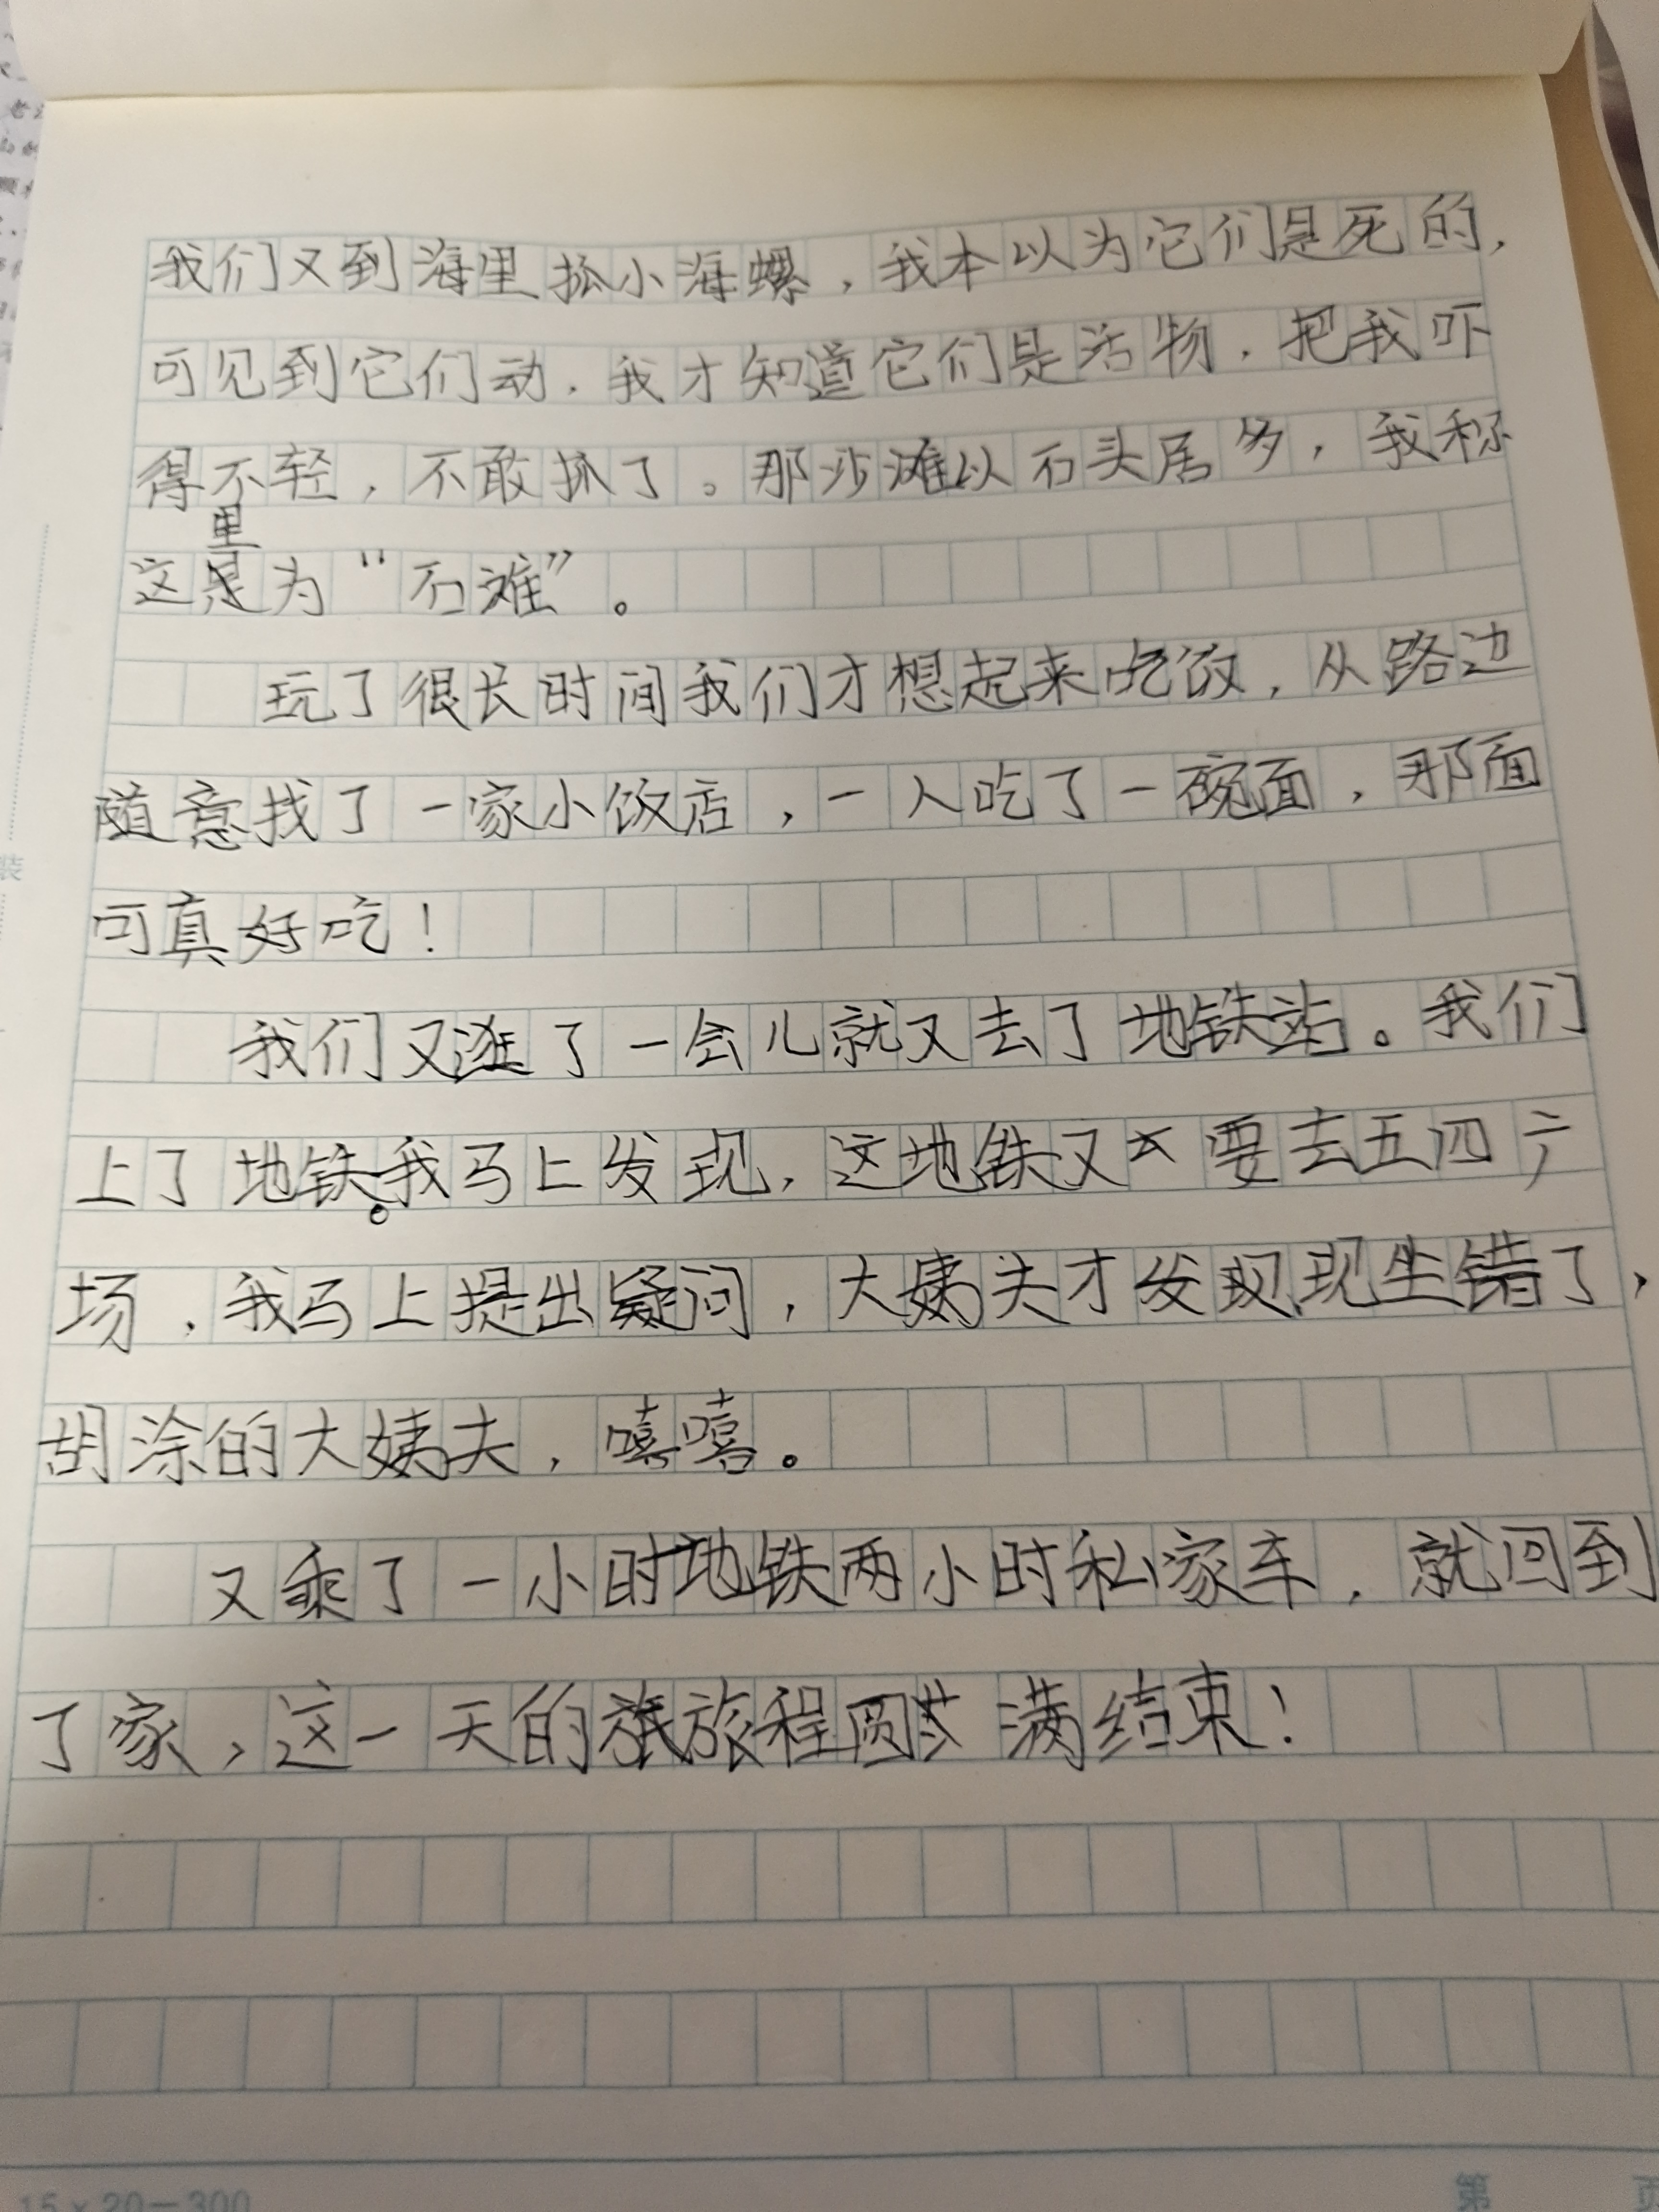 我们又到海里抓小海螺，我本以为它们是死的，
可见到它们动，我才知道它们是活物，把我吓
得不轻，不敢抓了。那沙滩以石头居多，我称
这里为“石滩”。
玩了很长时间我们才想起来吃饭，从路边
随意找了一家小饭店，一人吃了一碗面，那面
可真好吃！
我们又逛了一会儿就又去了地铁站。我们
上了地铁。我马上发现，这地铁又要去五四广
场，我马上提出疑问，大姨夫才发现现坐错了，
胡涂的大姨夫，嘻嘻。
又乘了一小时地铁两小时私家车，就回到
了家，这一天的旅程圆满结束！
15×20=300
第 页
装